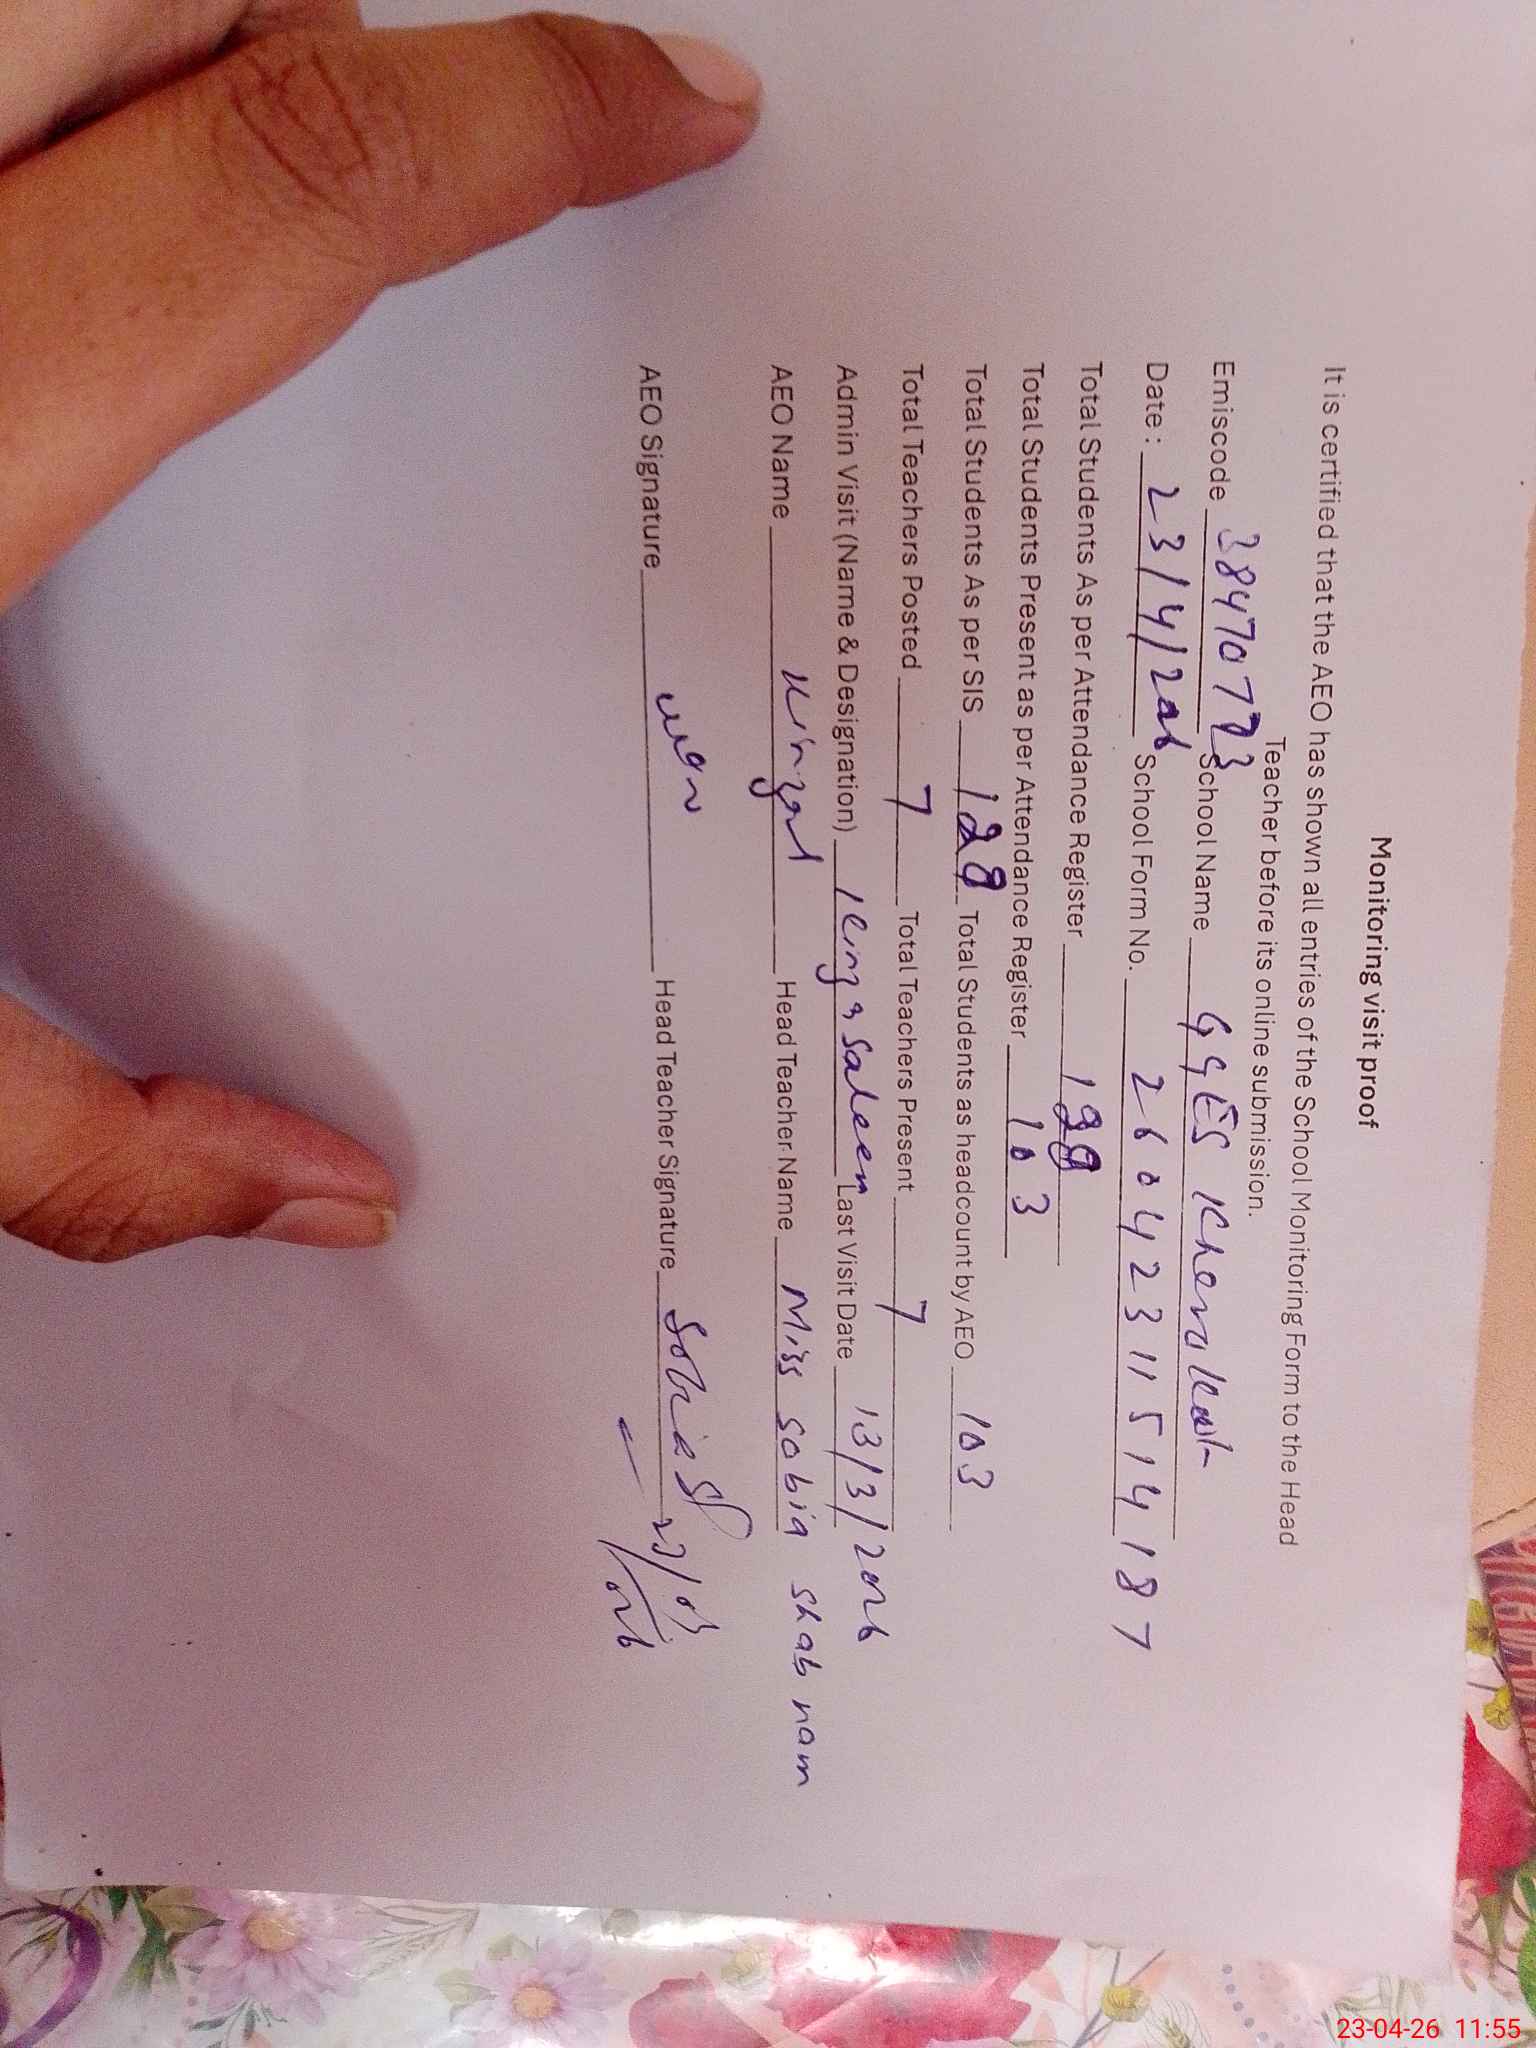 Monitoring visit proof
It is certified that the AEO has shown all entries of the School Monitoring Form to the Head
Teacher before its online submission.
Emiscode School Name GGES
Date: 23/4/2026 School Form No. 26042311514187
Total Students As per Attendance Register
Total Students Present as per Attendance Register 103
Total Students As per SIS 128 Total Students as headcount by AEO 103
Total Teachers Posted 7 Total Teachers Present 7
Admin Visit (Name & Designation) Kinza Saleem Last Visit Date 13/3/2026
AEO Name Head Teacher Name Miss Sobia Shab nam
AEO Signature Head Teacher Signature Sobia
23-04-26 11:55